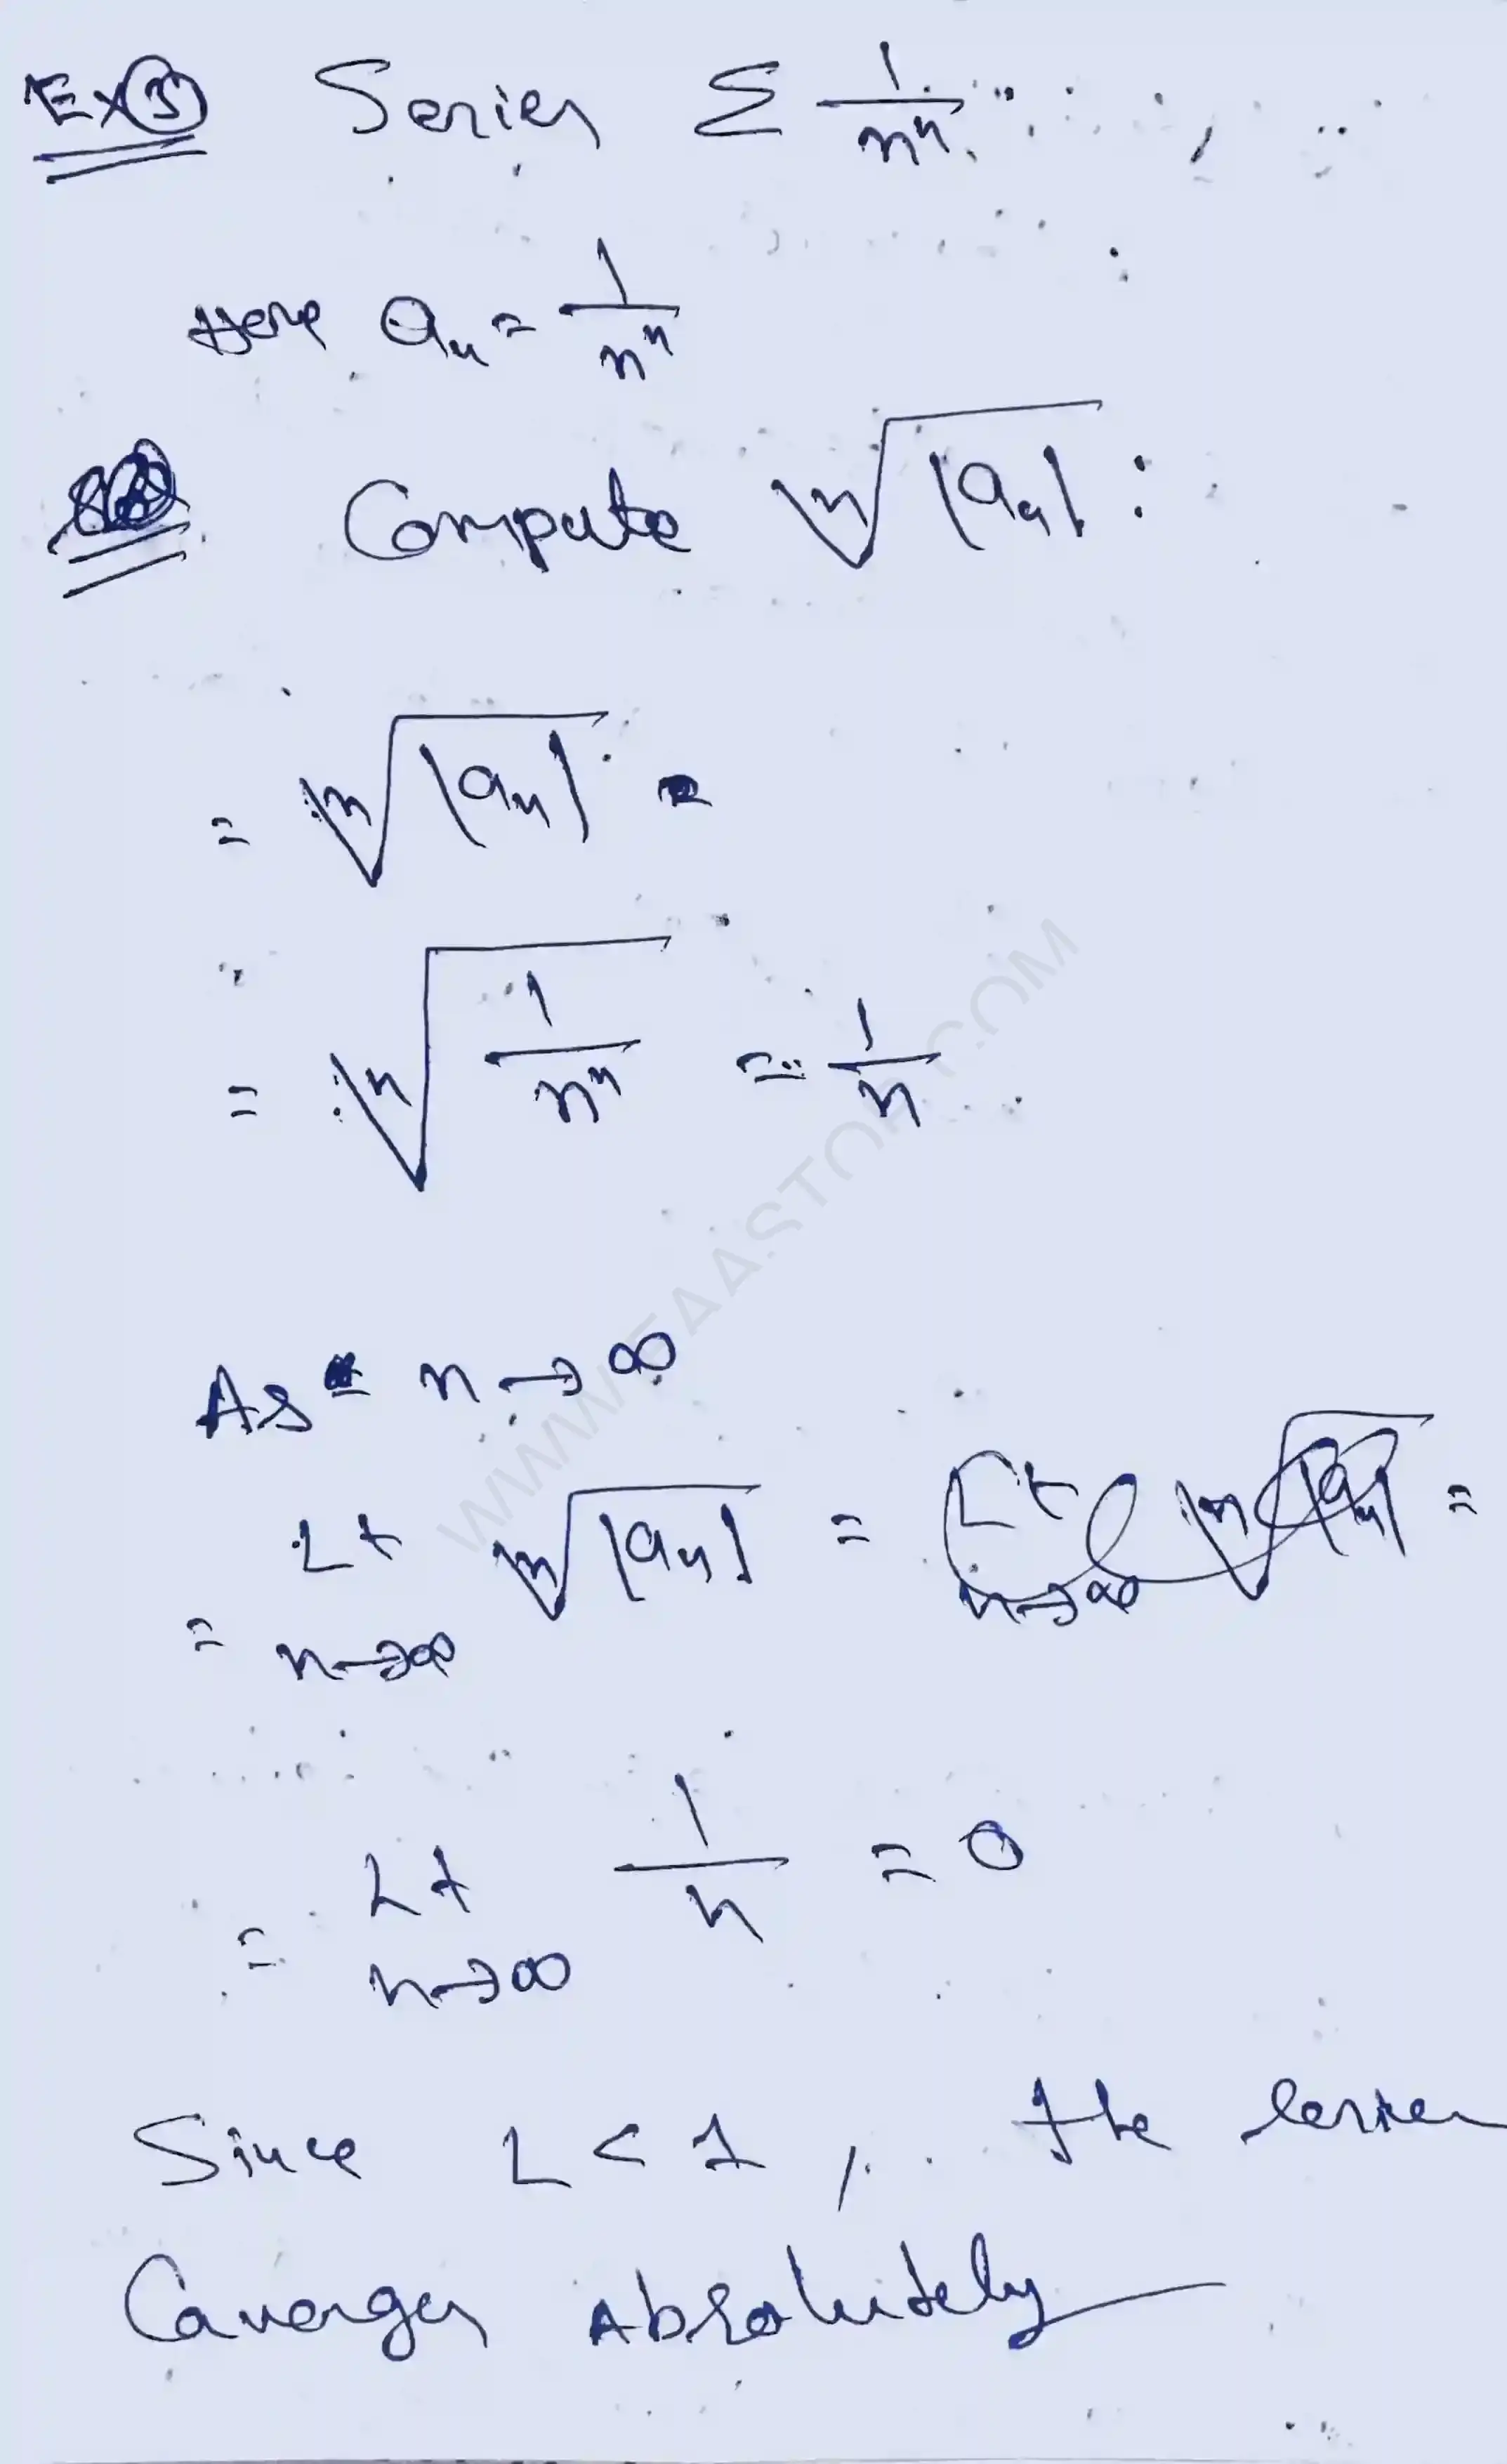 Ex ③ Series Σ 1/n^n
Here a_n = 1/n^n
Compute ⁿ√|a_n| :
= ⁿ√|a_n|
= ⁿ√(1/n^n) = 1/n
As n → ∞
= Lt n→∞ ⁿ√|a_n| =
= Lt n→∞ 1/n = 0
Since L < 1, the series
Converges Absolutely